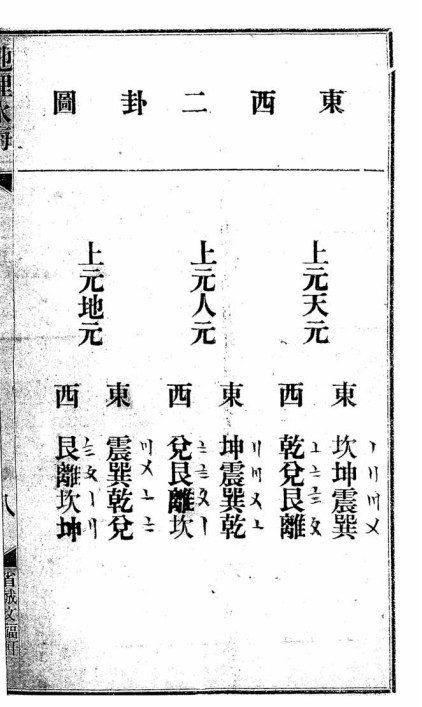 東西二卦圖
上元天元
東 坎坤震巽
〡〢〣〤
西 乾兌艮離
〦〧〨〩
上元人元
東 坤震巽乾
〢〣〤〦
西 兌艮離坎
〧〨〩〡
上元地元
東 震巽乾兌
〣〤〦〧
西 艮離坎坤
〨〩〡〢
地理
八
省城文